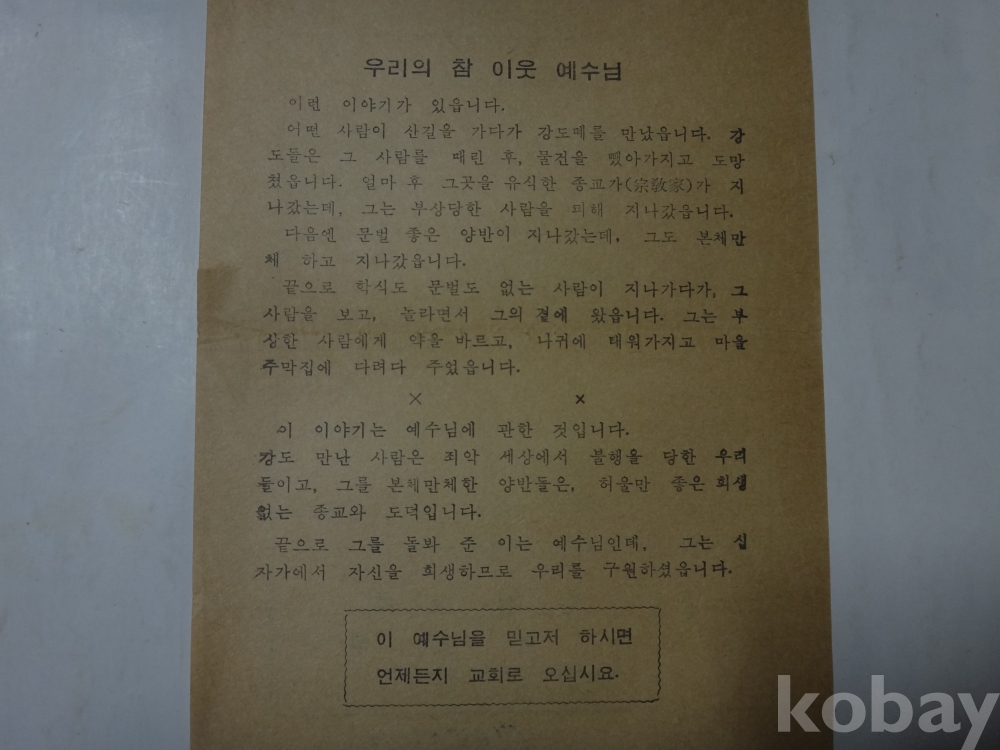 우리의 참 이웃 예수님
이런 이야기가 있읍니다.
어떤 사람이 산길을 가다가 강도떼를 만났읍니다. 강
도들은 그 사람를 때린 후, 물건을 뺐아가지고 도망
쳤읍니다. 얼마 후 그곳을 유식한 종교가(宗敎家)가 지
나갔는데, 그는 부상당한 사람을 피해 지나갔읍니다.
다음엔 문벌 좋은 양반이 지나갔는데, 그도 본체만
체 하고 지나갔읍니다.
끝으로 학식도 문벌도 없는 사람이 지나가다가, 그
사람을 보고, 놀라면서 그의 곁에 왔읍니다. 그는 부
상한 사람에게 약을 바르고, 나귀에 태워가지고 마을
주막집에 다려다 주었읍니다.
× ×
이 이야기는 예수님에 관한 것입니다.
강도 만난 사람은 죄악 세상에서 불행을 당한 우리
들이고, 그를 본체만체한 양반들은, 허울만 좋은 희생
없는 종교와 도덕입니다.
끝으로 그를 돌봐 준 이는 예수님인데, 그는 십
자가에서 자신을 희생하므로 우리를 구원하셨읍니다.
이 예수님을 믿고저 하시면
언제든지 교회로 오십시요.
kobay